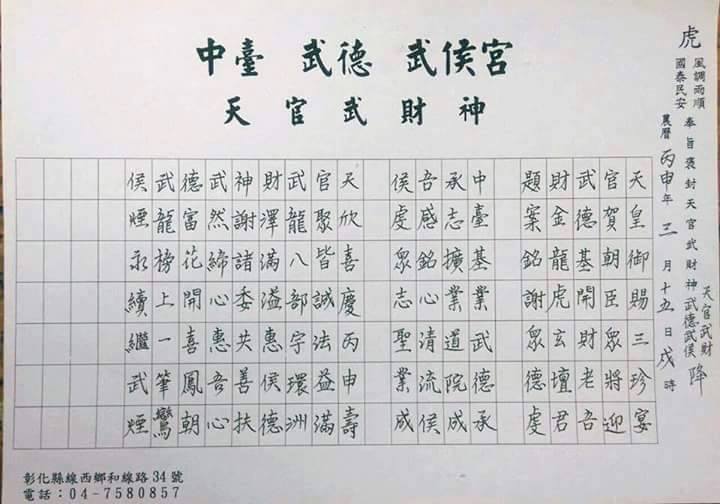 中臺 武德 武侯宮
天官武財神
虎
風調雨順
國泰民安
奉旨褒封天官武財神武德武侯
天官武財
降
農曆丙申年三月十五日戌時
天皇御賜三珍宴
官賀朝臣眾將迎
武德基開財老吾
財金龍虎玄壇君
題案銘謝眾德虔
中臺基業武德承
承志擴業道院成
吾感銘心清流侯
侯虔眾志聖業成
天欣喜慶丙申壽
官聚皆誠法益滿
武龍八部宇環洲
財澤滿溢惠侯德
神謝諸委共善扶
武然締心惠吾心
德富花開喜鳳朝
武龍榜上一筆鸞
侯煙永續繼武煙
彰化縣線西鄉和線路34號
電話：04-7580857